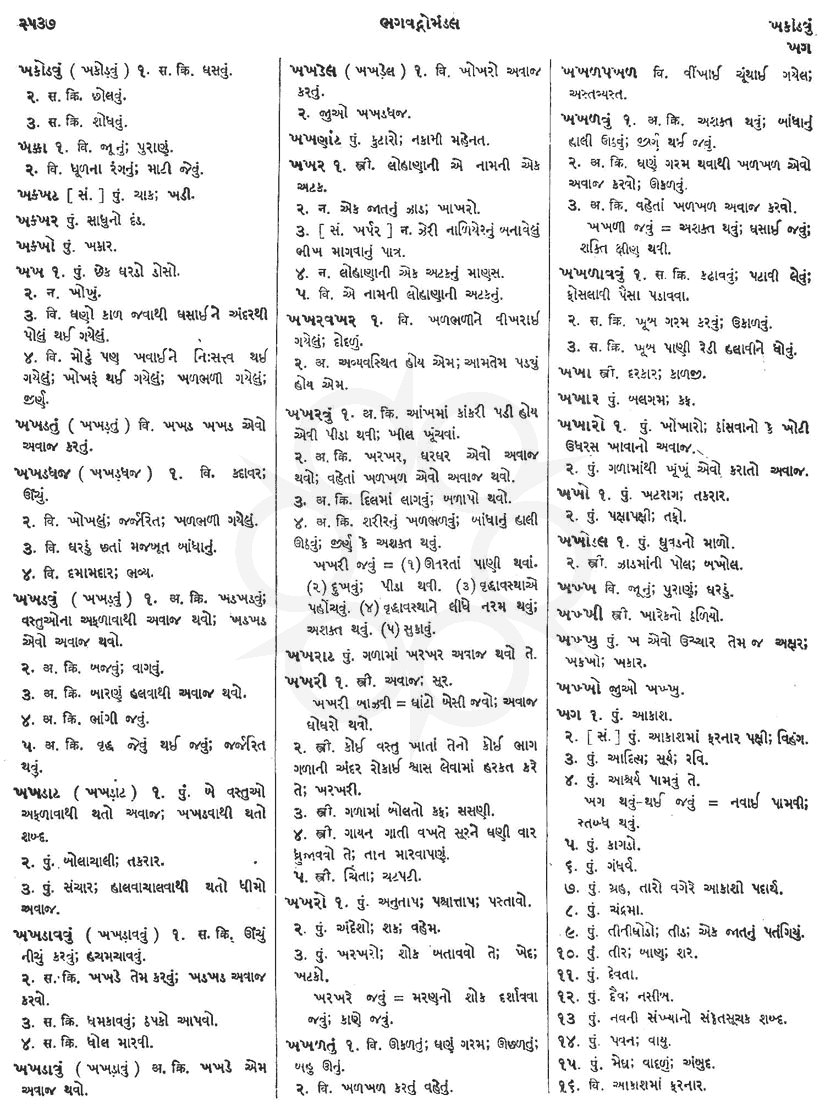 ૨૫૩૭
ભગવદ્ગોમંડલ
ખકોડવું
ખગ
ખકોડવું ( ખકોડ઼વું ) ૧. સ. ક્રિ. ઘસવું.
૨. સ. ક્રિ. છોલવું.
૩. સ. ક્રિ. શોધવું.
ખક્કા ૧. વિ. જૂનું; પુરાણું.
૨. વિ. ધૂળના રંગનું; માટી જેવું.
ખક્ખટ [ સં. ] પું. ચાક; ખડી.
ખક્ખર પું. સાધુનો દંડ.
ખક્ખો પું. ખકાર.
ખખ ૧. પું. છેક ઘરડો ડોસો.
૨. ન. ખોખું.
૩. વિ. ઘણો કાળ જવાથી ઘસાઈને અંદરથી
પોલું થઈ ગયેલું.
૪. વિ. મોટું પણ ખવાઈને નિઃસત્ત્વ થઈ
ગયેલું; ખોખરૂં થઈ ગયેલું; ખળભળી ગયેલું;
જીર્ણ.
ખખડતું ( ખખડ઼તું ) વિ. ખખડ ખખડ એવો
અવાજ કરતું.
ખખડધજ ( ખખડ઼ધજ ) ૧. વિ. કદાવર;
ઊંચું.
૨. વિ. ખોખલું; જર્જરિત; ખળભળી ગયેલું.
૩. વિ. ઘરડું છતાં મજબૂત બાંધાનું.
૪. વિ. દમામદાર; ભવ્ય.
ખખડવું ( ખખડ઼વું ) ૧. અ. ક્રિ. ખડખડવું;
વસ્તુઓના અફળાવાથી અવાજ થવો; ખડખડ
એવો અવાજ થવો.
૨. અ. ક્રિ. બજવું; વાગવું.
૩. અ. ક્રિ. બારણું હલવાથી અવાજ થવો.
૪. અ. ક્રિ. ભાંગી જવું.
૫. અ. ક્રિ. વૃદ્ધ જેવું થઈ જવું; જર્જરિત
થવું.
ખખડાટ ( ખખડ઼ાટ ) ૧. પું. બે વસ્તુઓ
અફળાવાથી થતો અવાજ; ખખડવાથી થતો
શબ્દ.
૨. પું. બોલાચાલી; તકરાર.
૩. પું. સંચાર; હાલવાચાલવાથી થતો ધીમો
અવાજ.
ખખડાવવું ( ખખડ઼ાવવું ) ૧. સ. ક્રિ. ઊંચું
નીચું કરવું; હચમચાવવું.
૨. સ. ક્રિ. ખખડે તેમ કરવું; ખડખડ અવાજ
કરવો.
૩. સ. ક્રિ. ધમકાવવું; ઠપકો આપવો.
૪. સ. ક્રિ. ધોલ મારવી.
ખખડાવું ( ખખડ઼ાવું ) અ. ક્રિ. ખખડે એમ
અવાજ થવો.
ખખડેલ ( ખખડ઼ેલ ) ૧. વિ. ખોખરો અવાજ
કરતું.
૨. જુઓ ખખડધજ.
ખખણાંટ પું. કુટારો; નકામી મહેનત.
ખખર ૧. સ્ત્રી. લોહાણાની એ નામની એક
અટક.
૨. ન. એક જાતનું ઝાડ; ખાખરો.
૩. [ સં. ખર્પર ] ન. ઝેરી નાળિયેરનું બનાવેલું
ભીખ માગવાનું પાત્ર.
૪. ન. લોહાણાની એક અટકનું માણસ.
૫. વિ. એ નામની લોહાણાની અટકનું.
ખખરવખર ૧. વિ. ખળભળીને વીખરાઈ
ગયેલું; દોદળું.
૨. અ. અવ્યવસ્થિત હોય એમ; આમતેમ પડ્યું
હોય એમ.
ખખરવું ૧. અ. ક્રિ. આંખમાં કાંકરી પડી હોય
એવી પીડા થવી; ખીલ ખૂંચવાં.
૨. અ. ક્રિ. ખરખર, ઘરઘર એવો અવાજ
થવો; વહેતાં ખળખળ એવો અવાજ થવો.
૩. અ. ક્રિ. દિલમાં લાગવું; બળાપો થવો.
૪. અ. ક્રિ. શરીરનું ખળભળવું; બાંધાનું હાલી
ઊઠવું; જીર્ણ કે અશક્ત થવું.
ખખરી જવું = (૧) ઊતરતાં પાણી થવાં.
(૨) દુખવું; પીડા થવી. (૩) વૃદ્ધાવસ્થાએ
પહોંચવું. (૪) વૃદ્ધાવસ્થાને લીધે નરમ થવું;
અશક્ત થવું. (૫) સુકાવું.
ખખરાટ પું. ગળામાં ખરખર અવાજ થવો તે.
ખખરી ૧. સ્ત્રી. અવાજ; સૂર.
ખખરી બાઝવી = ઘાંટો બેસી જવો; અવાજ
ઘોઘરો થવો.
૨. સ્ત્રી. કોઈ વસ્તુ ખાતાં તેનો કોઈ ભાગ
ગળાની અંદર રોકાઈ શ્વાસ લેવામાં હરકત કરે
તે; ખરખરી.
૩. સ્ત્રી. ગળામાં બોલતો કફ; સસણી.
૪. સ્ત્રી. ગાયન ગાતી વખતે સૂરને ઘણી વાર
ધ્રુજાવવો તે; તાન મારવાપણું.
૫. સ્ત્રી. ચિંતા; ચટપટી.
ખખરો ૧. પું. અનુતાપ; પશ્ચાત્તાપ; પસ્તાવો.
૨. પું. અંદેશો; શક; વહેમ.
૩. પું. ખરખરો; શોક બતાવવો તે; ખેદ;
ખટકો.
ખખરે જવું = મરણનો શોક દર્શાવવા
જવું; કાણે જવું.
ખખળતું ૧. વિ. ઊકળતું; ઘણું ગરમ; ઊછળતું;
બહુ ઊનું.
૨. વિ. ખળખળ કરતું વહેતું.
ખખળપખળ વિ. વીંખાઈ ચૂંથાઈ ગયેલ;
અસ્તવ્યસ્ત.
ખખળવું ૧. અ. ક્રિ. અશક્ત થવું; બાંધાનું
હાલી ઊઠવું; જીર્ણ થઈ જવું.
૨. અ. ક્રિ. ઘણું ગરમ થવાથી ખળખળ એવો
અવાજ કરવો; ઊકળવું.
૩. અ. ક્રિ. વહેતાં ખળખળ અવાજ કરવો.
ખખળી જવું = અશક્ત થવું; ઘસાઈ જવું;
શક્તિ ક્ષીણ થવી.
ખખળાવવું ૧. સ. ક્રિ. કઢાવવું; પટાવી લેવું;
ફોસલાવી પૈસા પડાવવા.
૨. સ. ક્રિ. ખૂબ ગરમ કરવું; ઉકાળવું.
૩. સ. ક્રિ. ખૂબ પાણી રેડી હલાવીને ધોવું.
ખખા સ્ત્રી. દરકાર; કાળજી.
ખખાર પું. બલગમ; કફ.
ખખારો ૧. પું. ખોંખારો; ઠાંસવાનો કે ખોટી
ઉધરસ ખાવાનો અવાજ.
૨. પું. ગળામાંથી ખૂંખૂં એવો કરાતો અવાજ.
ખખો ૧. પું. ખટરાગ; તકરાર.
૨. પું. પક્ષાપક્ષી; તફો.
ખખોડલ ૧. પું. ઘુવડનો માળો.
૨. સ્ત્રી. ઝાડમાંની પોલ; બખોલ.
ખખ્ખ વિ. જૂનું; પુરાણું; ઘરડું.
ખખ્ખી સ્ત્રી. ખારેકનો ઠળિયો.
ખખ્ખુ પું. ખ એવો ઉચ્ચાર તેમ જ અક્ષર;
ખકખો; ખકાર.
ખખ્ખો જુઓ ખખ્ખુ.
ખગ ૧. પું. આકાશ.
૨. [ સં. ] પું. આકાશમાં ફરનાર પક્ષી; વિહંગ.
૩. પું. આદિત્ય; સૂર્ય; રવિ.
૪. પું. આશ્ચર્ય પામવું તે.
ખગ થવું-થઈ જવું = નવાઈ પામવી;
સ્તબ્ધ થવું.
૫. પું. કાગડો.
૬. પું. ગંધર્વ.
૭. પું. ગ્રહ, તારો વગેરે આકાશી પદાર્થ.
૮. પું. ચંદ્રમા.
૯. પું. તીતીઘોડો; તીડ; એક જાતનું પતંગિયું.
૧૦. પું. તીર; બાણ; શર.
૧૧. પું. દેવતા.
૧૨. પું. દૈવ; નસીબ.
૧૩ પું. નવની સંખ્યાનો સંકેતસૂચક શબ્દ.
૧૪. પું. પવન; વાયુ.
૧૫. પું. મેઘ; વાદળું; અંબુદ.
૧૬. વિ. આકાશમાં ફરનાર.